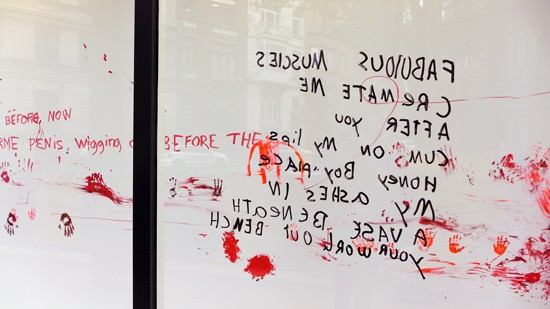 BEFORE, NOW
RME PENIS, Wigging BEFORE THE
FABULOUS MUSCLES
CReMATE ME
AFTER YOU
CUMS ON My lips
HONEY Boy PLACE
MY ASHES IN
A VASE BENEATH
YOUR WORK OUT BENCH